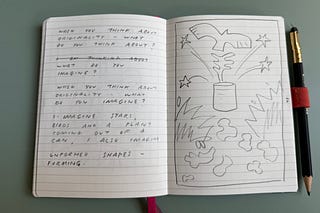 WHEN YOU THINK ABOUT
ORIGINALITY - WHAT
DO YOU THINK ABOUT?
WHAT DO YOU
IMAGINE?
WHEN YOU THINK ABOUT
ORIGINALITY - WHAT
DO YOU IMAGINE?
I IMAGINE STARS,
BIRDS AND A PLANT
COMING OUT OF A
CAN, I ALSO IMAGINE
UNFORMED SHAPES -
FORMING.